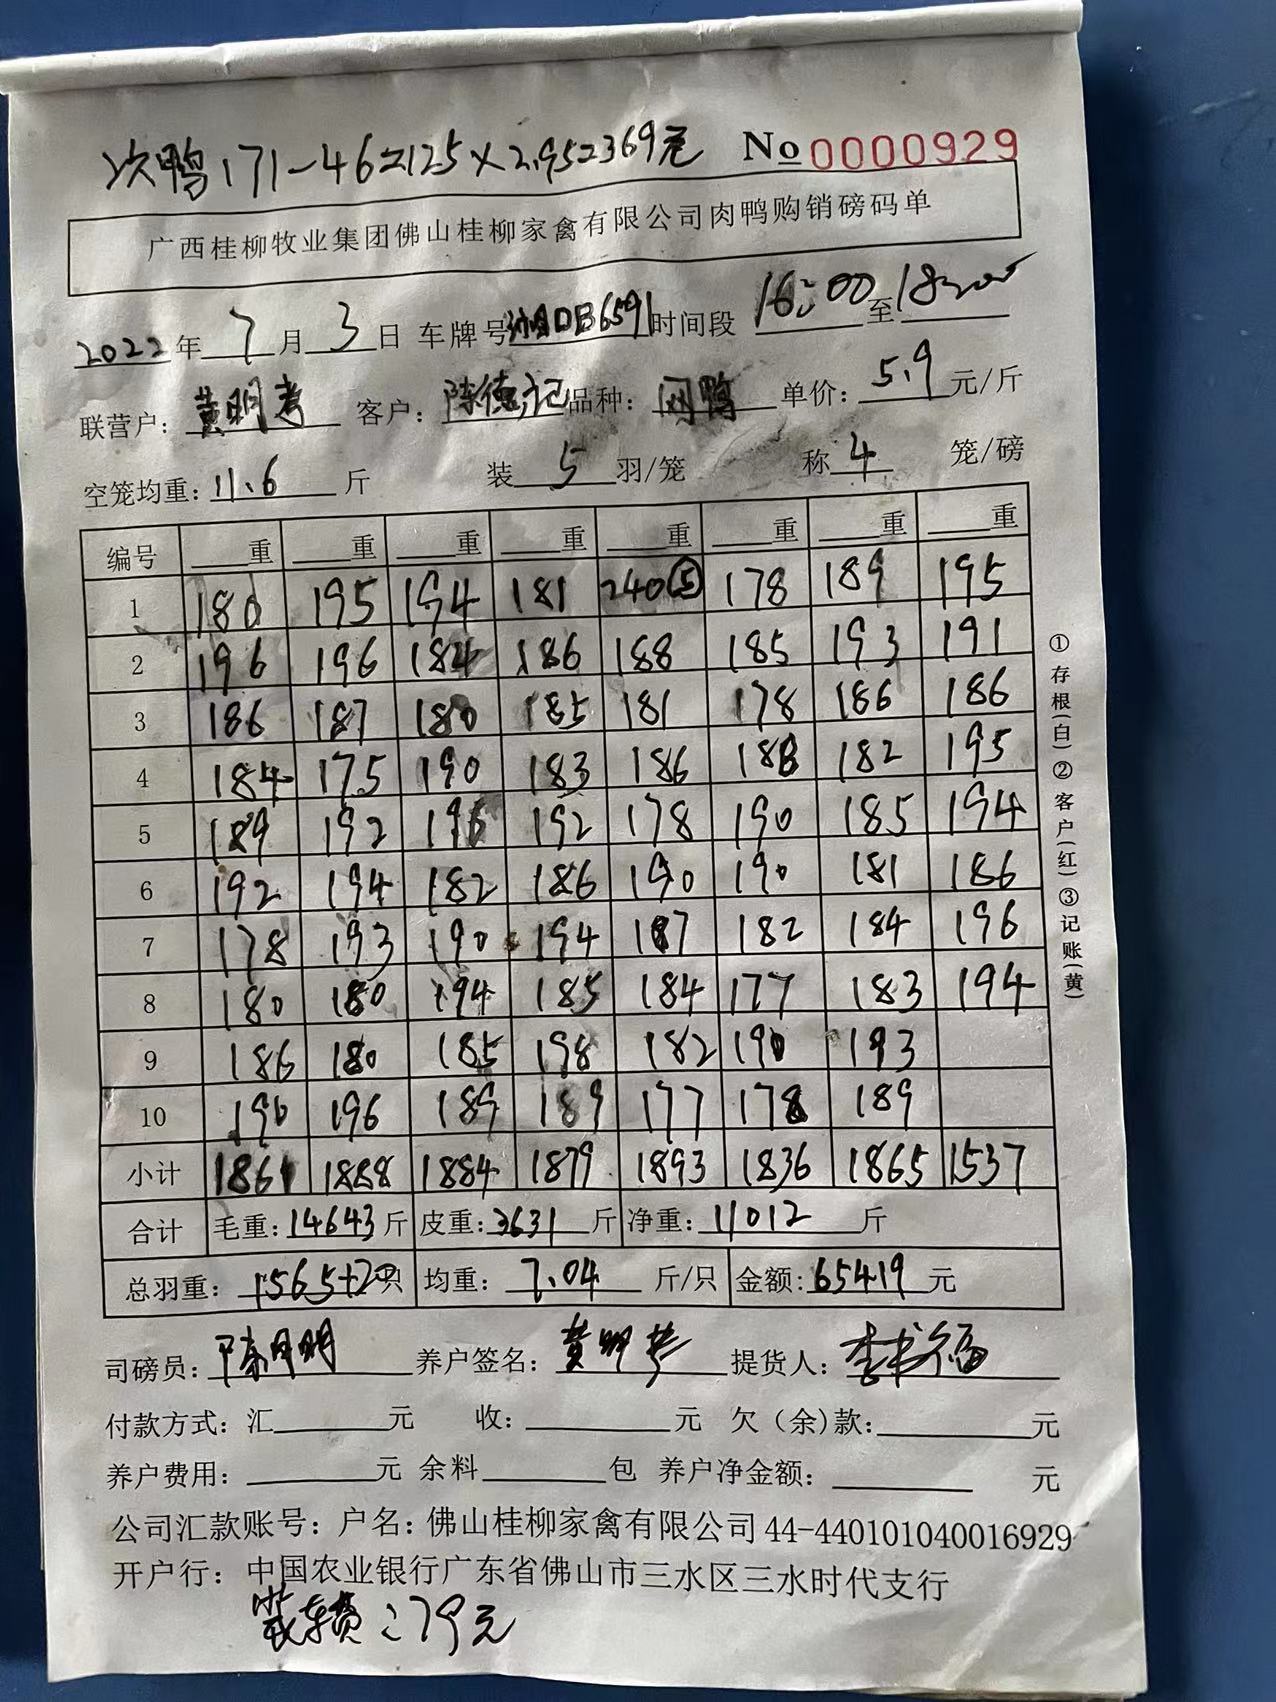 次鸭171-46=125×2.95=369元 No 0000929
广西桂柳牧业集团佛山桂柳家禽有限公司肉鸭购销磅码单
2022年7月3日 车牌号湘DB6591时间段 16:00至18:00
联营户：黄明考 客户：陈德记 品种： 单价：5.9元/斤
空笼均重：11.6斤 装5羽/笼 称4笼/磅
编号 重 重 重 重 重 重 重 重
1 180 195 194 181 240⑤ 178 189 195
2 196 196 184 186 188 185 193 191
3 186 187 180 185 181 178 186 186
4 184 175 190 183 186 188 182 195
5 189 192 196 192 178 190 185 194
6 192 194 182 186 190 190 181 186
7 178 193 190 194 187 182 184 196
8 180 180 194 185 184 177 183 194
9 186 180 185 198 182 190 193
10 190 196 189 189 177 178 189
小计 1861 1888 1884 1879 1893 1836 1865 1537
合计 毛重：14643斤 皮重：3631斤 净重：11012斤
总羽重：1565+20只 均重：7.04斤/只 金额：65419元
司磅员： 养户签名： 提货人：李书福
付款方式：汇 元 收： 元 欠（余）款： 元
养户费用： 元 余料 包 养户净金额： 元
公司汇款账号：户名：佛山桂柳家禽有限公司 44-440101040016929
开户行：中国农业银行广东省佛山市三水区三水时代支行
装车费：79元
①存根(白)②客户(红)③记账(黄)